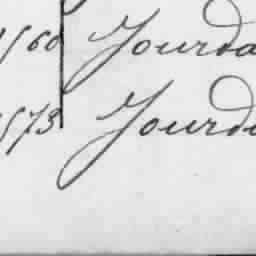 1560 Jourda
1573 Jourd